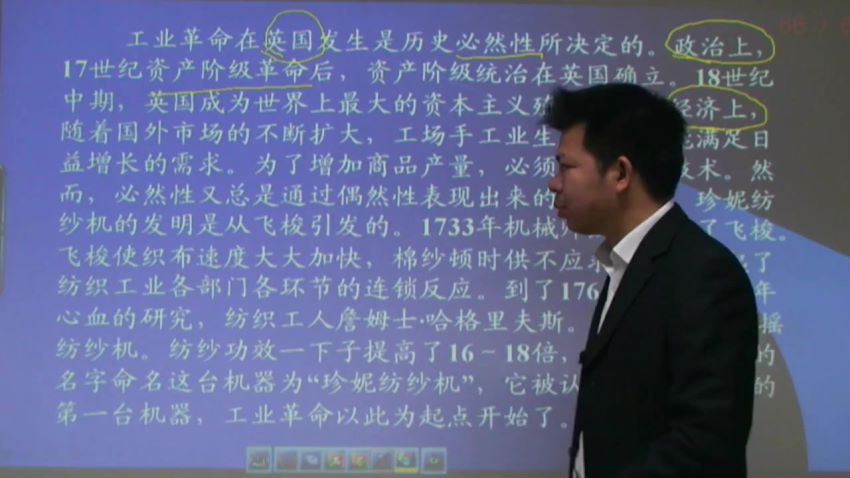 工业革命在英国发生是历史必然性所决定的。政治上，
17世纪资产阶级革命后，资产阶级统治在英国确立。18世纪
中期，英国成为世界上最大的资本主义 经济上，
随着国外市场的不断扩大，工场手工业生 能满足日
益增长的需求。为了增加商品产量，必须 技术。然
而，必然性又总是通过偶然性表现出来的 珍妮纺
纱机的发明是从飞梭引发的。1733年机械 了飞梭。
飞梭使织布速度大大加快，棉纱顿时供不应求 了
纺织工业各部门各环节的连锁反应。到了176 年
心血的研究，纺织工人詹姆士·哈格里夫斯 摇
纺纱机。纺纱功效一下子提高了16～18倍， 的
名字命名这台机器为“珍妮纺纱机”，它被认 的
第一台机器，工业革命以此为起点开始了。